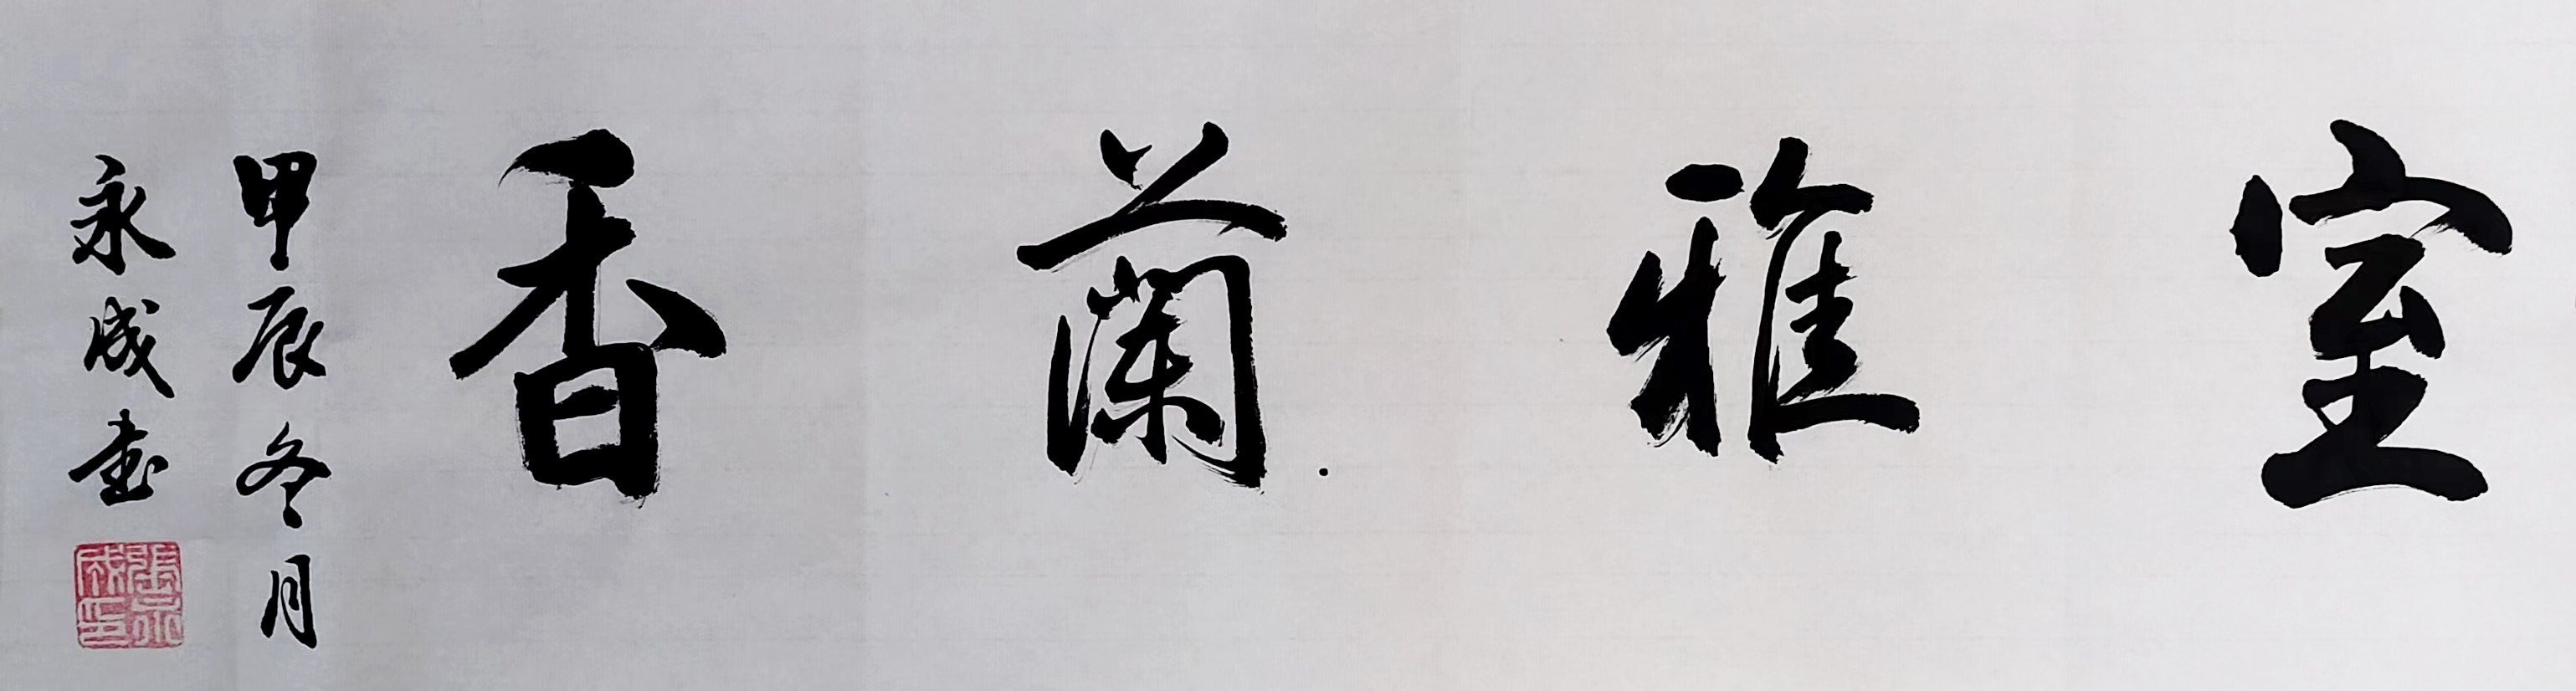 室雅蘭香
甲辰冬月
永成書
張永成印